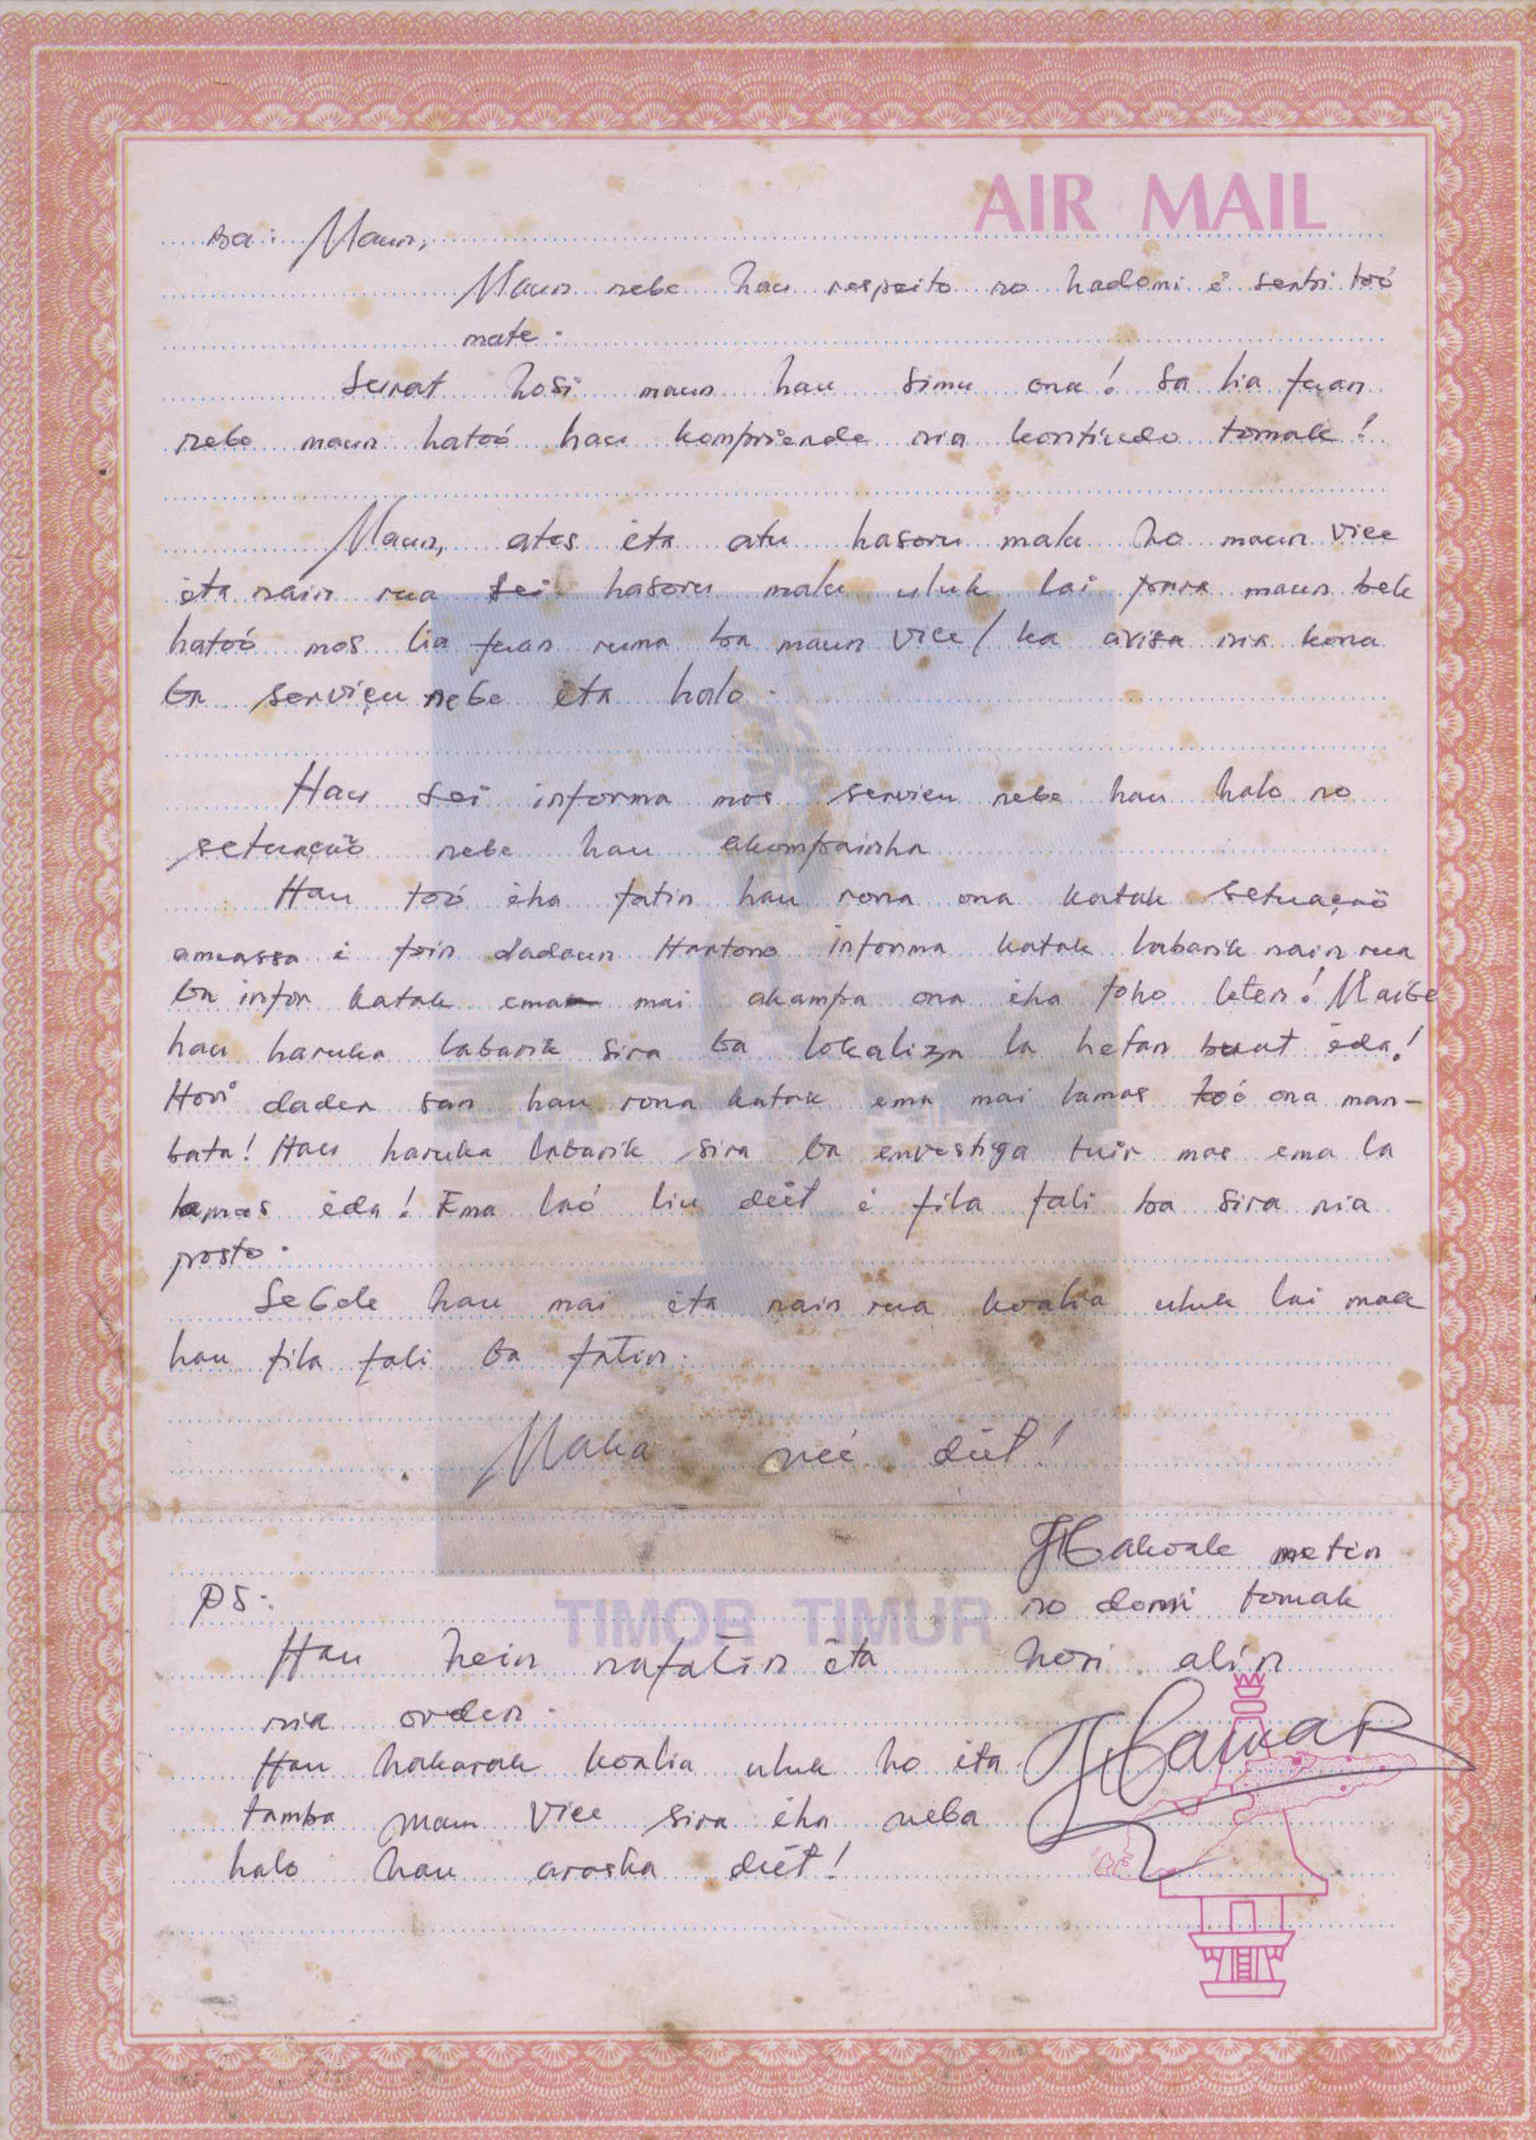 AIR MAIL
Ba: Maun,
Maun nebe hau respeito no hadomi é sentri toó
mate.
Surat hosi maun hau simu ona! Sa lia fuan
nebe maun hatoó hau kompriende nia kontiudo tomak!
Maun, ates ita atu hasoru malu ho maun vice
ita nain rua sei hasoru malu uluk lai para maun bele
hatoó mos lia fuan ruma ba maun vice/ka avisa nia kona
ba serviçu nebe ita halo.
Hau sei informa mos servicu nebe hau halo no
setuação nebe hau akompainha
Hau toó iha fatin hau rona ona katak setuação
ameassa i foin dadaun Hartono informa katak labarik nain rua
ba infor katak ema mai akampa ona iha foho leten! Maibe
hau haruka labarik sira ba lokaliza la hetan buat ida!
Hori dader san hau rona katak ema mai lamas toó ona man-
bata! Hau haruka labarik sira ba envestiga tuir mas ema la
lamas ida! Ema laó liu deit i fila fali ba sira nia
posto.
Se bele hau mai ita nain rua koalia uluk lai mak
hau fila fali ba fatin.
Maka neé deit!
Hakoak metin
no domi tomak
hosi alin
PS.
TIMOR TIMUR
Hau hein nafatin ita
nia orden.
Hau hakarak koalia uluk ho ita
tamba maun Vice sira iha neba
halo hau araska deit!